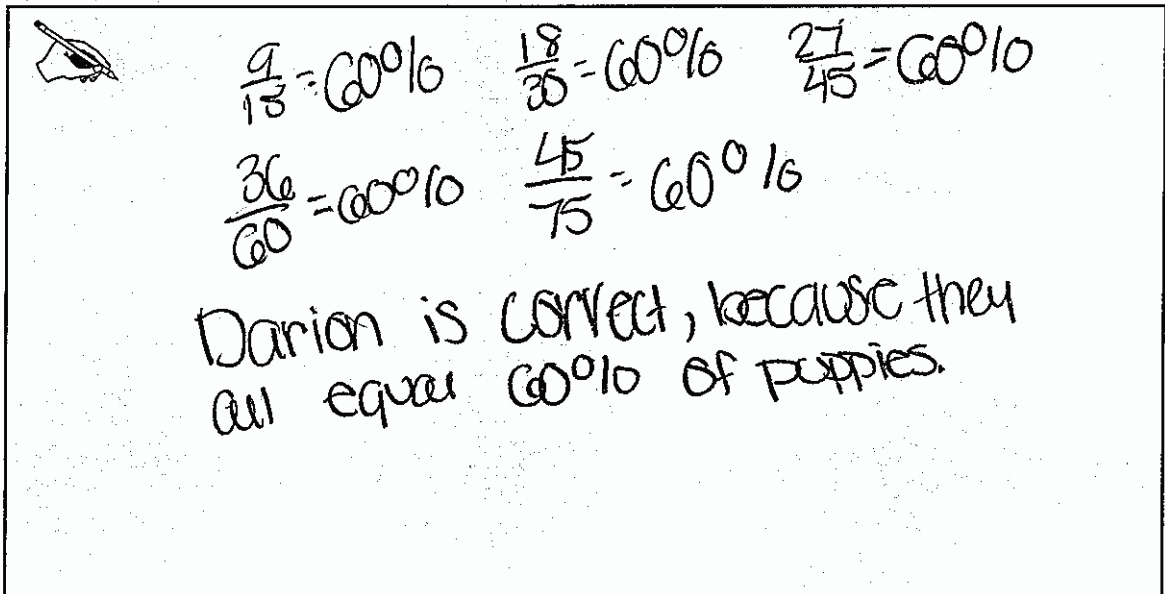 9/15 = 60% 18/30 = 60% 27/45 = 60%
36/60 = 60% 45/75 = 60%
Darion is correct, because they
all equal 60% of puppies.